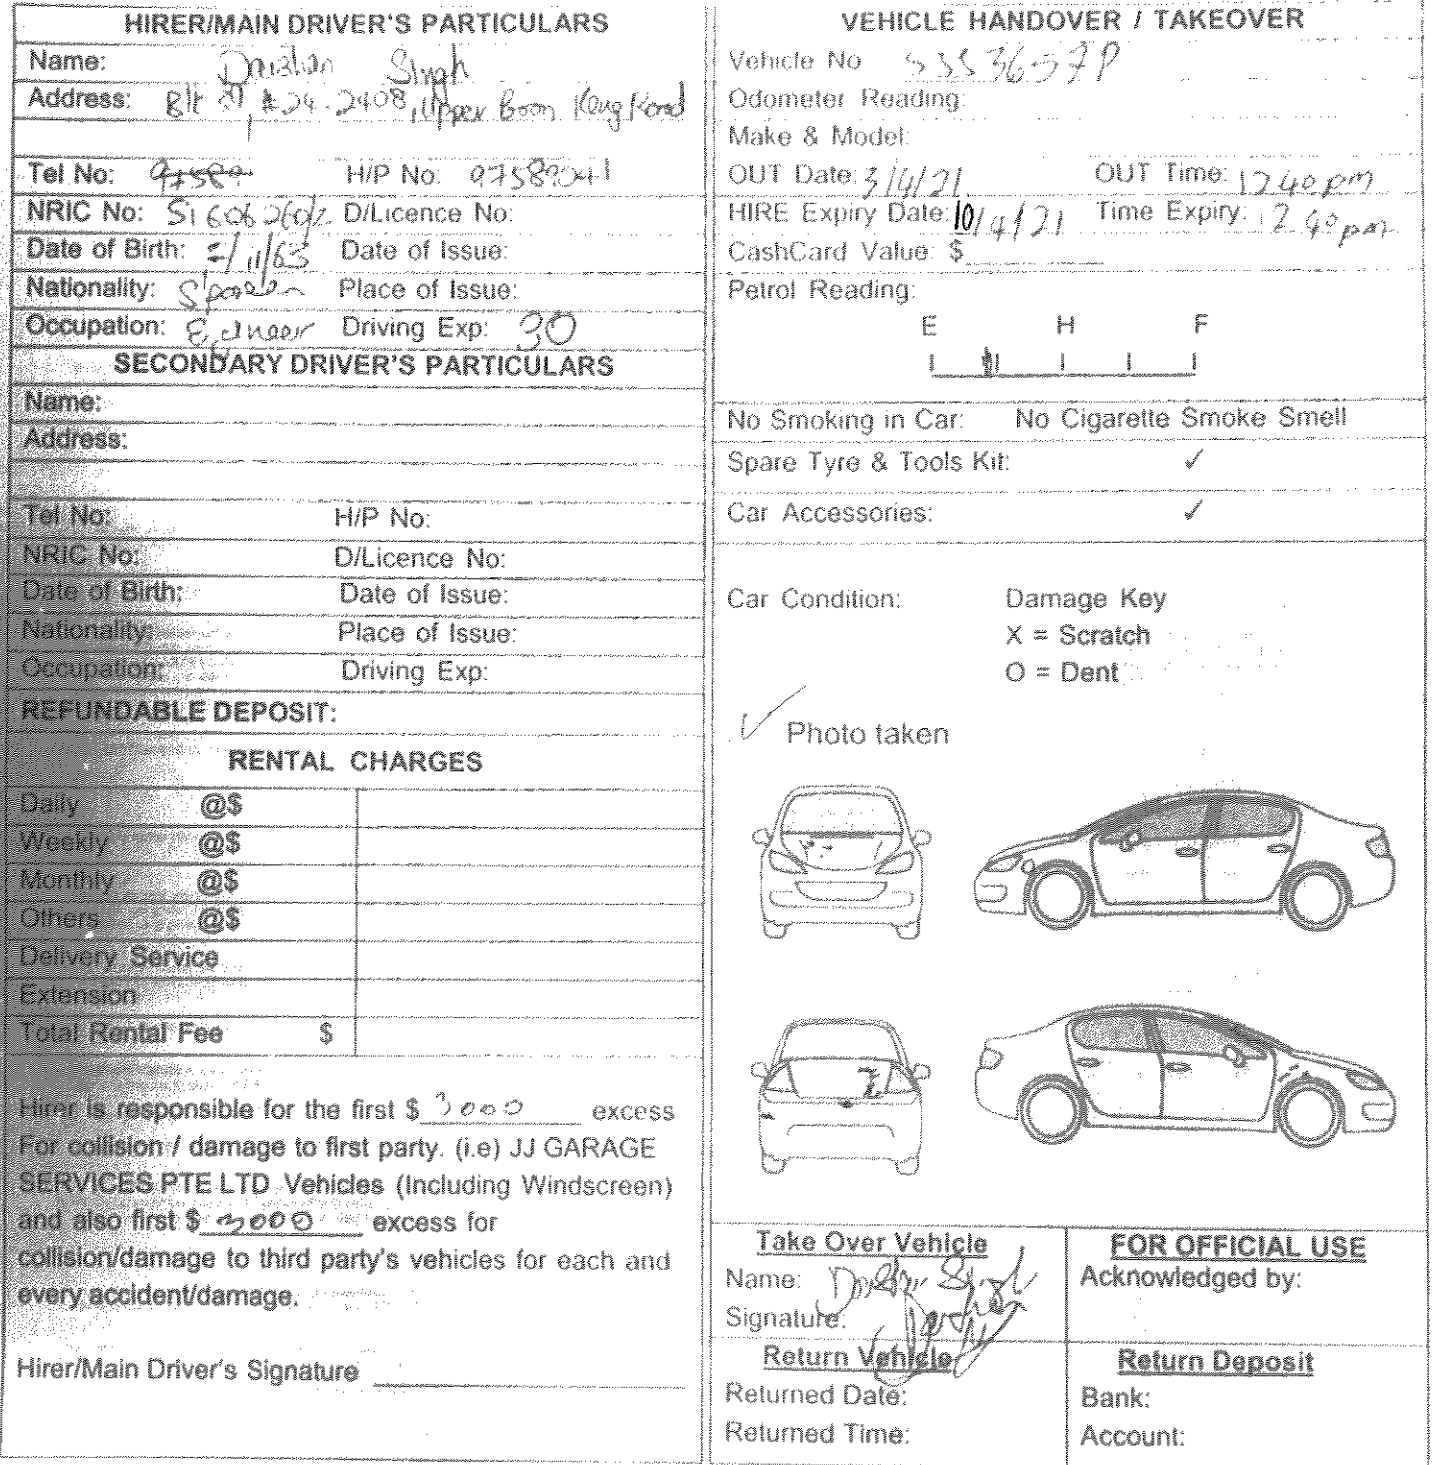 HIRER/MAIN DRIVER'S PARTICULARS
Name: Singh
Address: #24-2408, Upper Boon Keng Road
Tel No: H/P No:
NRIC No: D/Licence No:
Date of Birth: /11/63 Date of Issue:
Nationality: Place of Issue:
Occupation: Engineer Driving Exp: 30
SECONDARY DRIVER'S PARTICULARS
Name:
Address:
Tel No: H/P No:
NRIC No: D/Licence No:
Date of Birth: Date of Issue:
Nationality: Place of Issue:
Occupation: Driving Exp:
REFUNDABLE DEPOSIT:
RENTAL CHARGES
Daily @$
Weekly @$
Monthly @$
Others @$
Delivery Service
Extension
Total Rental Fee $
Hirer is responsible for the first $ 3000 excess
For collision / damage to first party. (i.e) JJ GARAGE
SERVICES PTE LTD Vehicles (Including Windscreen)
and also first $ 3000 excess for
collision/damage to third party's vehicles for each and
every accident/damage.
Hirer/Main Driver's Signature
VEHICLE HANDOVER / TAKEOVER
Vehicle No
Odometer Reading:
Make & Model:
OUT Date: 3/4/21 OUT Time: 12 40 pm
HIRE Expiry Date: 10/4/21 Time Expiry: 12 40 pm
CashCard Value: $
Petrol Reading:
E H F
No Smoking in Car: No Cigarette Smoke Smell
Spare Tyre & Tools Kit: ✓
Car Accessories: ✓
Car Condition: Damage Key
X = Scratch
O = Dent
✓ Photo taken
Take Over Vehicle
Name: Singh
Signature:
Return Vehicle
Returned Date:
Returned Time:
FOR OFFICIAL USE
Acknowledged by:
Return Deposit
Bank:
Account: